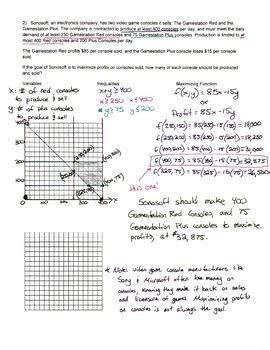 2) Sonosoft, an electronics company, has two video game consoles it sells: The Gamestation Red and the
Gamestation Plus. The company is contracted to produce at least 400 consoles per day, and must meet the daily
demand of at least 250 Gamestation Red consoles and 75 Gamestation Plus consoles. Production is limited to
at most 400 Red consoles and 200 Plus Consoles per day.
The Gamestation Red profits $85 per console sold, and the Gamestation Plus console loses $15 per console
sold.
If the goal of Sonosoft is to maximize profits on console sales, how many of each console should be produced
and sold?
Variables
Inequalities
Maximizing Function
x: # of red consoles
to produce & sell
y: # of plus consoles
to produce & sell
x+y ≥ 400
x ≥ 250 x ≤ 400
y ≥ 75 y ≤ 200
f(x,y) = 85x-15y
or
Profit = 85x-15y
f(250,150) = 85(250)-15(150) = 19,000
f(250,200) = 85(250)-15(200) = 18,250
f(400,200) = 85(400)-15(200) = 31,000
f(400,75) = 85(400)-15(75) = 32,875
f(325,75) = 85(325)-15(75) = 26,500
this one!
Sonosoft should make 400
Gamestation Red Consoles and 75
Gamestation Plus consoles to maximize
profits, at $32,875.
* Note: video game console manufacturers like
Sony & Microsoft often lose money on
consoles, knowing they make it back on sales
and licensure of games. Maximizing profits
on consoles is not always the goal.